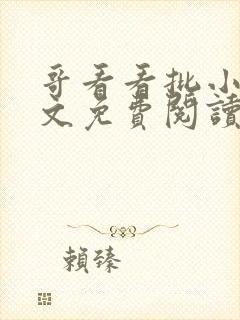 哥看看批小
文免費閱讀
賴臻